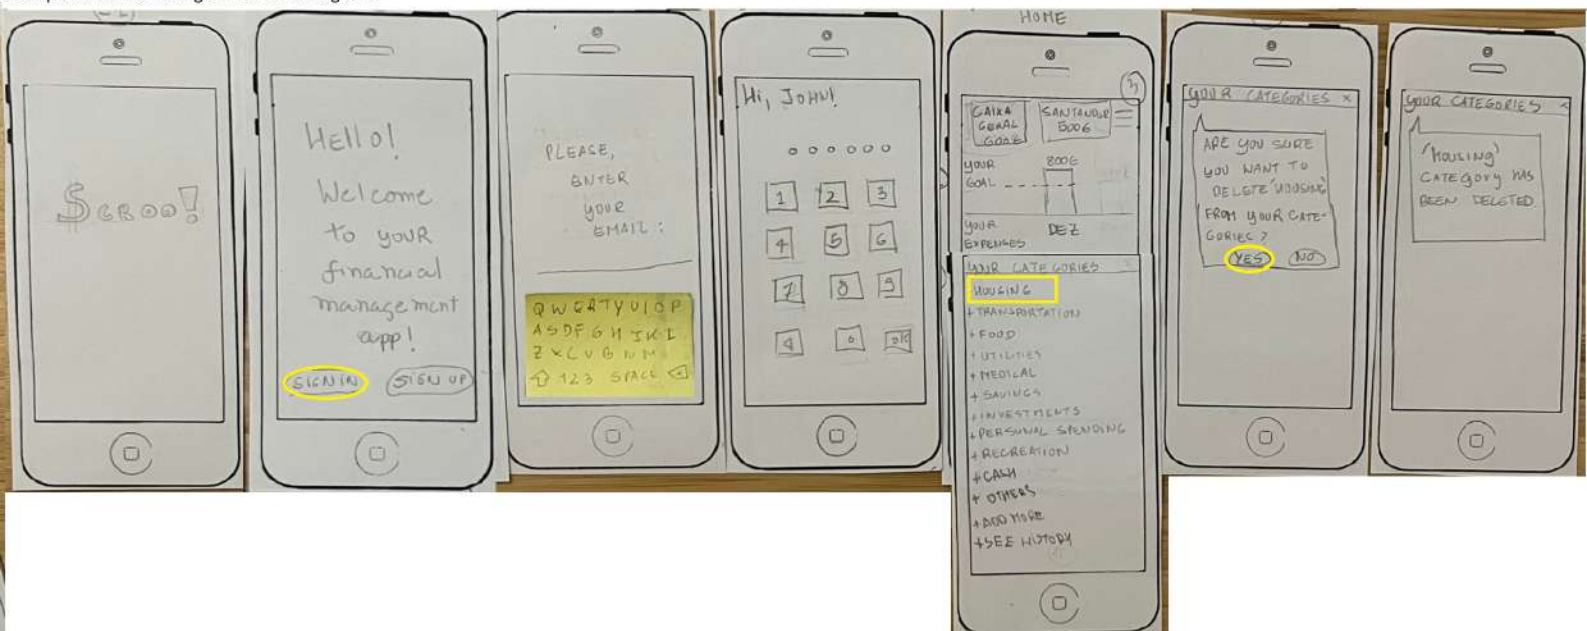 $GROO!
Hello!
Welcome
to your
financial
management
app!
SIGN IN
SIGN UP
PLEASE,
ENTER
YOUR
EMAIL:
QWERTYUIOP
ASDFGHJKL
ZXCVBNM
123 SPACE
Hi, JOHN!
1 2 3
4 5 6
7 8 9
0 OK
HOME
CAIXA
GERAL
SANTANDER
500€
YOUR
GOAL
800€
YOUR
EXPENSES
DEZ
YOUR CATEGORIES
HOUSING
+ TRANSPORTATION
+ FOOD
+ UTILITIES
+ MEDICAL
+ SAVINGS
+ INVESTMENTS
+ PERSONAL SPENDING
+ RECREATION
+ CASH
+ OTHERS
+ ADD MORE
+ SEE HISTORY
YOUR CATEGORIES X
ARE YOU SURE
YOU WANT TO
DELETE 'HOUSING'
FROM YOUR CATE-
GORIES?
YES
NO
YOUR CATEGORIES X
'HOUSING'
CATEGORY HAS
BEEN DELETED.